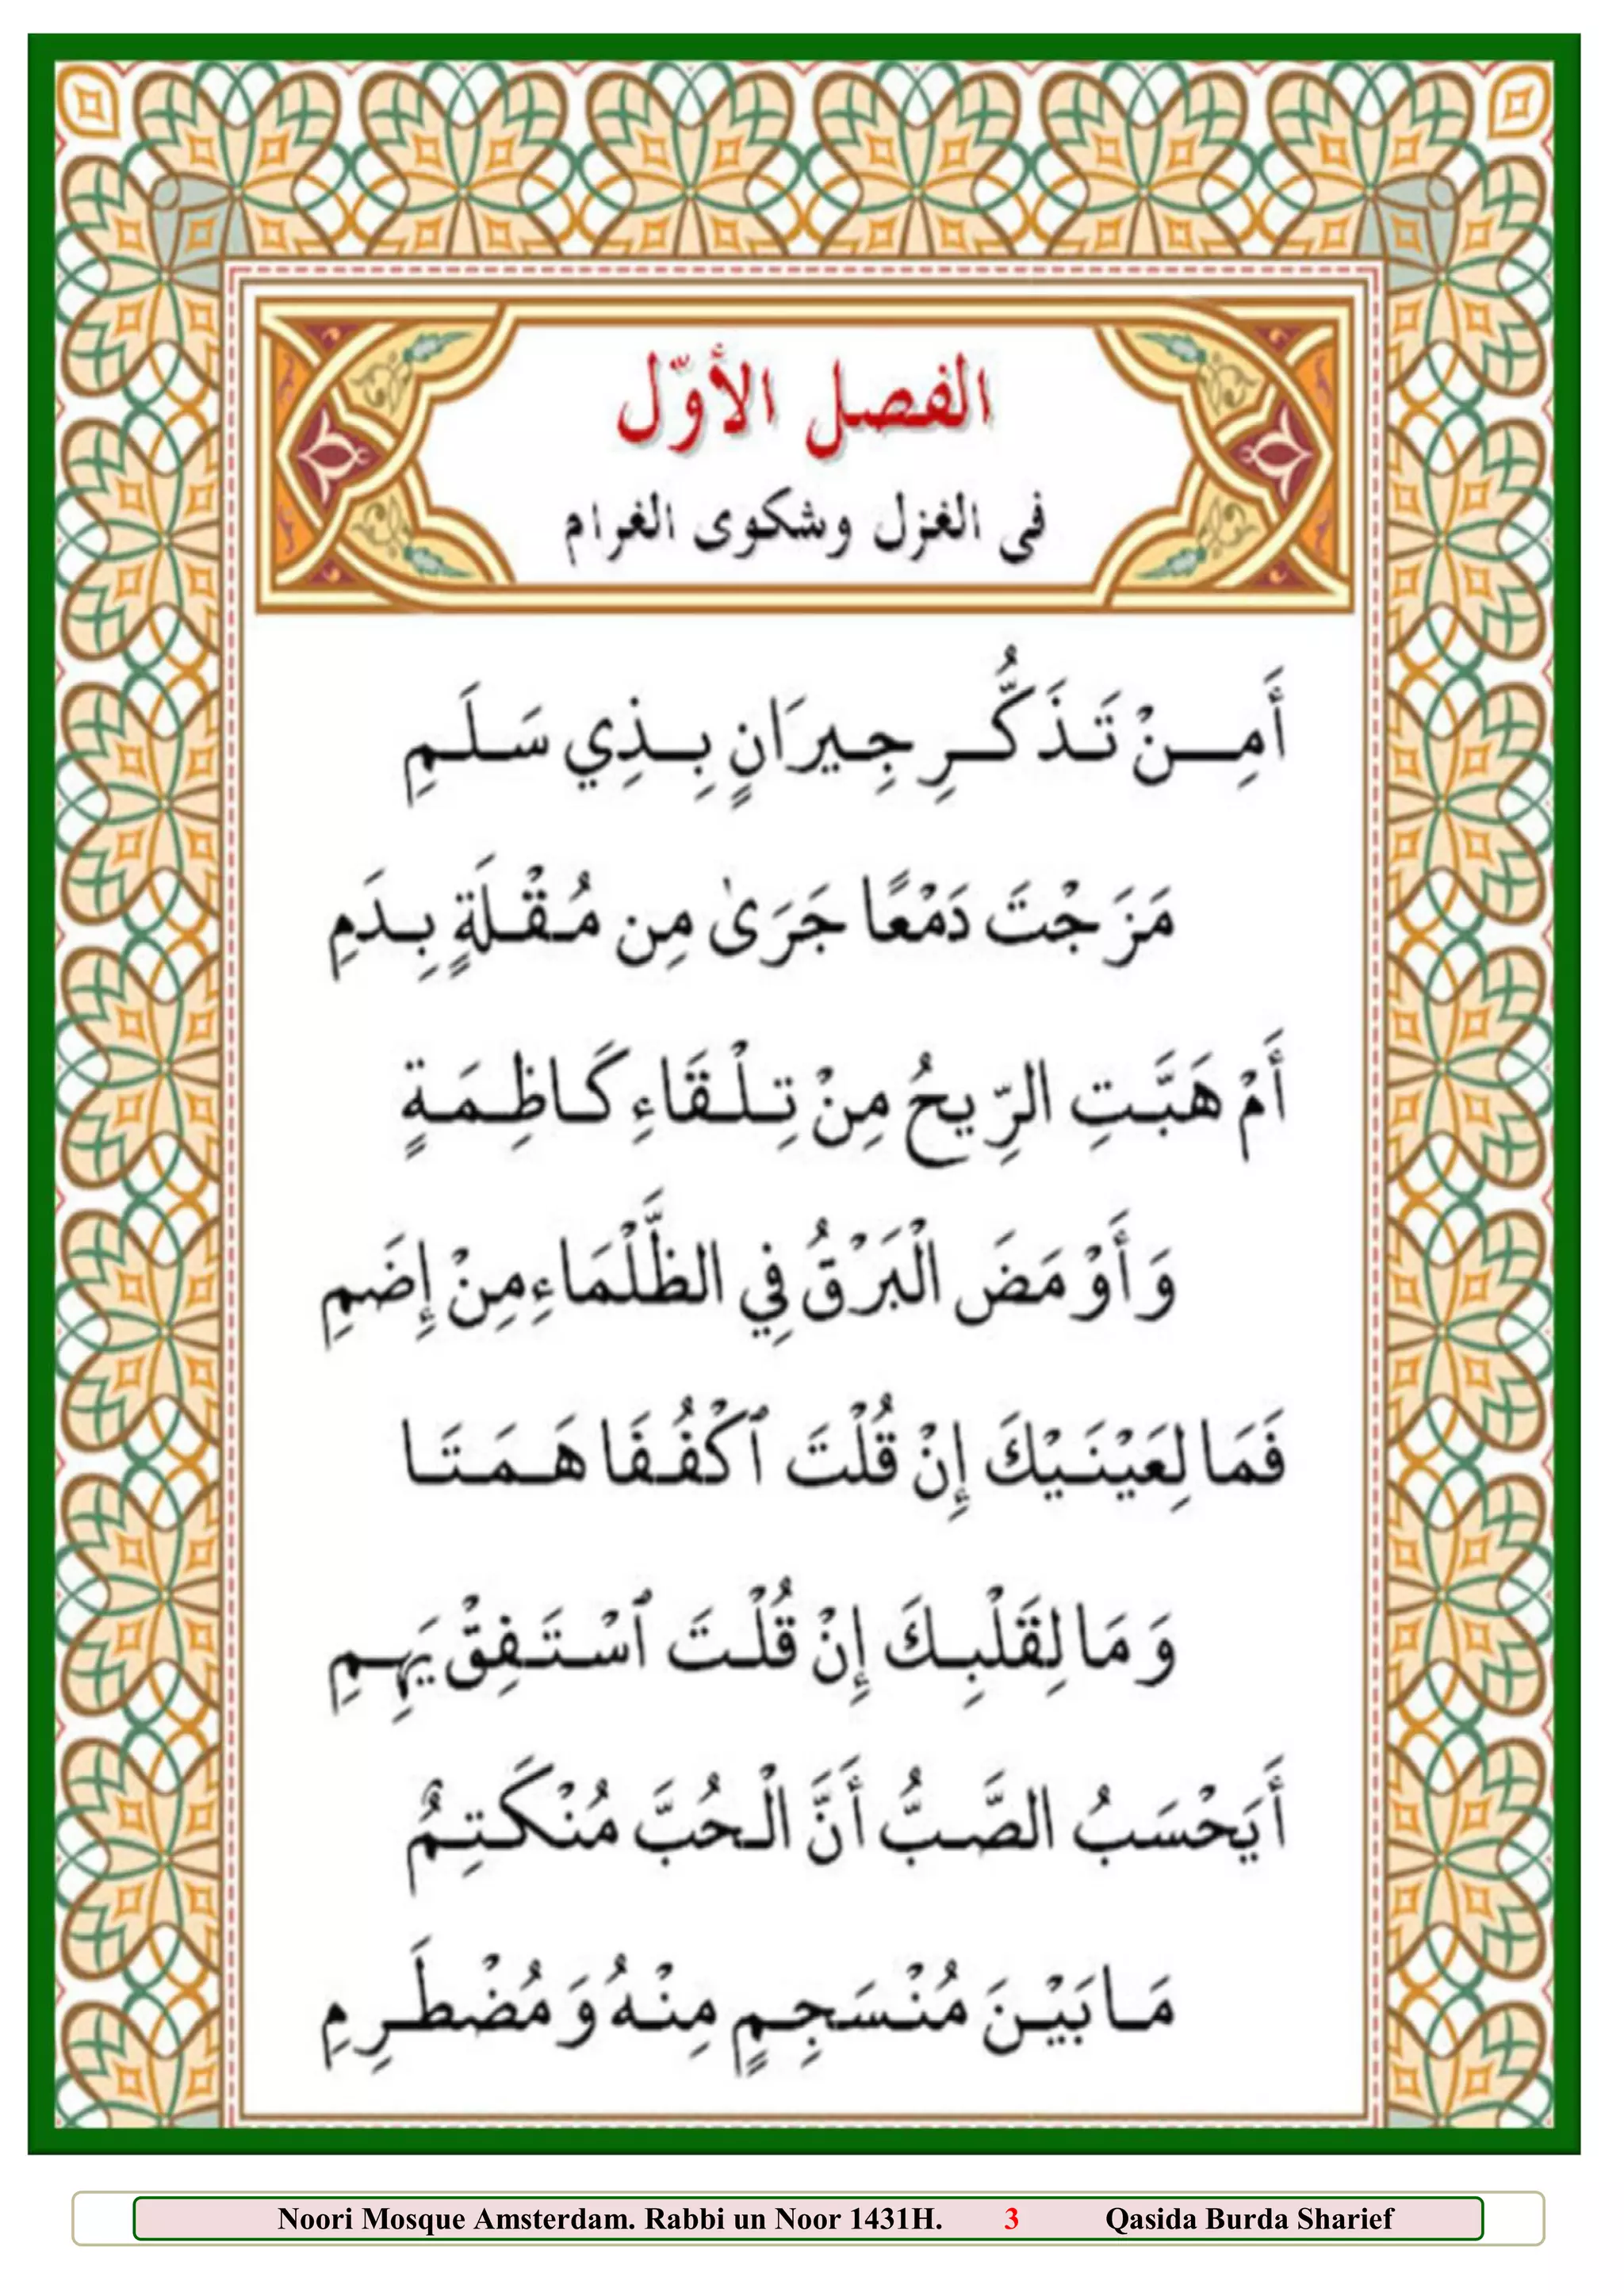 الفصل الأوّل
فى الغزل وشكوى الغرام
أَمِـــنْ تَـذَكُّــرِ جِـيرَانٍ بِــذِي سَـلَـمِ
مَزَجْتَ دَمْعًا جَرَىٰ مِن مُـقْـلَةٍ بِـدَمِ
أَمْ هَبَّـتِ الرِّيحُ مِنْ تِـلْـقَاءِ كَـاظِـمَـةٍ
وَأَوْمَضَ الْبَرْقُ فِي الظَّلْمَاءِ مِنْ إِضَمِ
فَمَا لِعَيْنَـيْكَ إِنْ قُلْتَ ٱكْفُـفَا هَـمَـتَـا
وَمَا لِقَلْبِـكَ إِنْ قُلْـتَ ٱسْـتَـفِقْ يَهِـمِ
أَيَحْسَبُ الصَّـبُّ أَنَّ الْـحُبَّ مُنْكَـتِـمٌ
مَـا بَيْـنَ مُنْـسَـجِـمٍ مِنْـهُ وَمُضْطَـرِمِ
Noori Mosque Amsterdam. Rabbi un Noor 1431H. 3 Qasida Burda Sharief